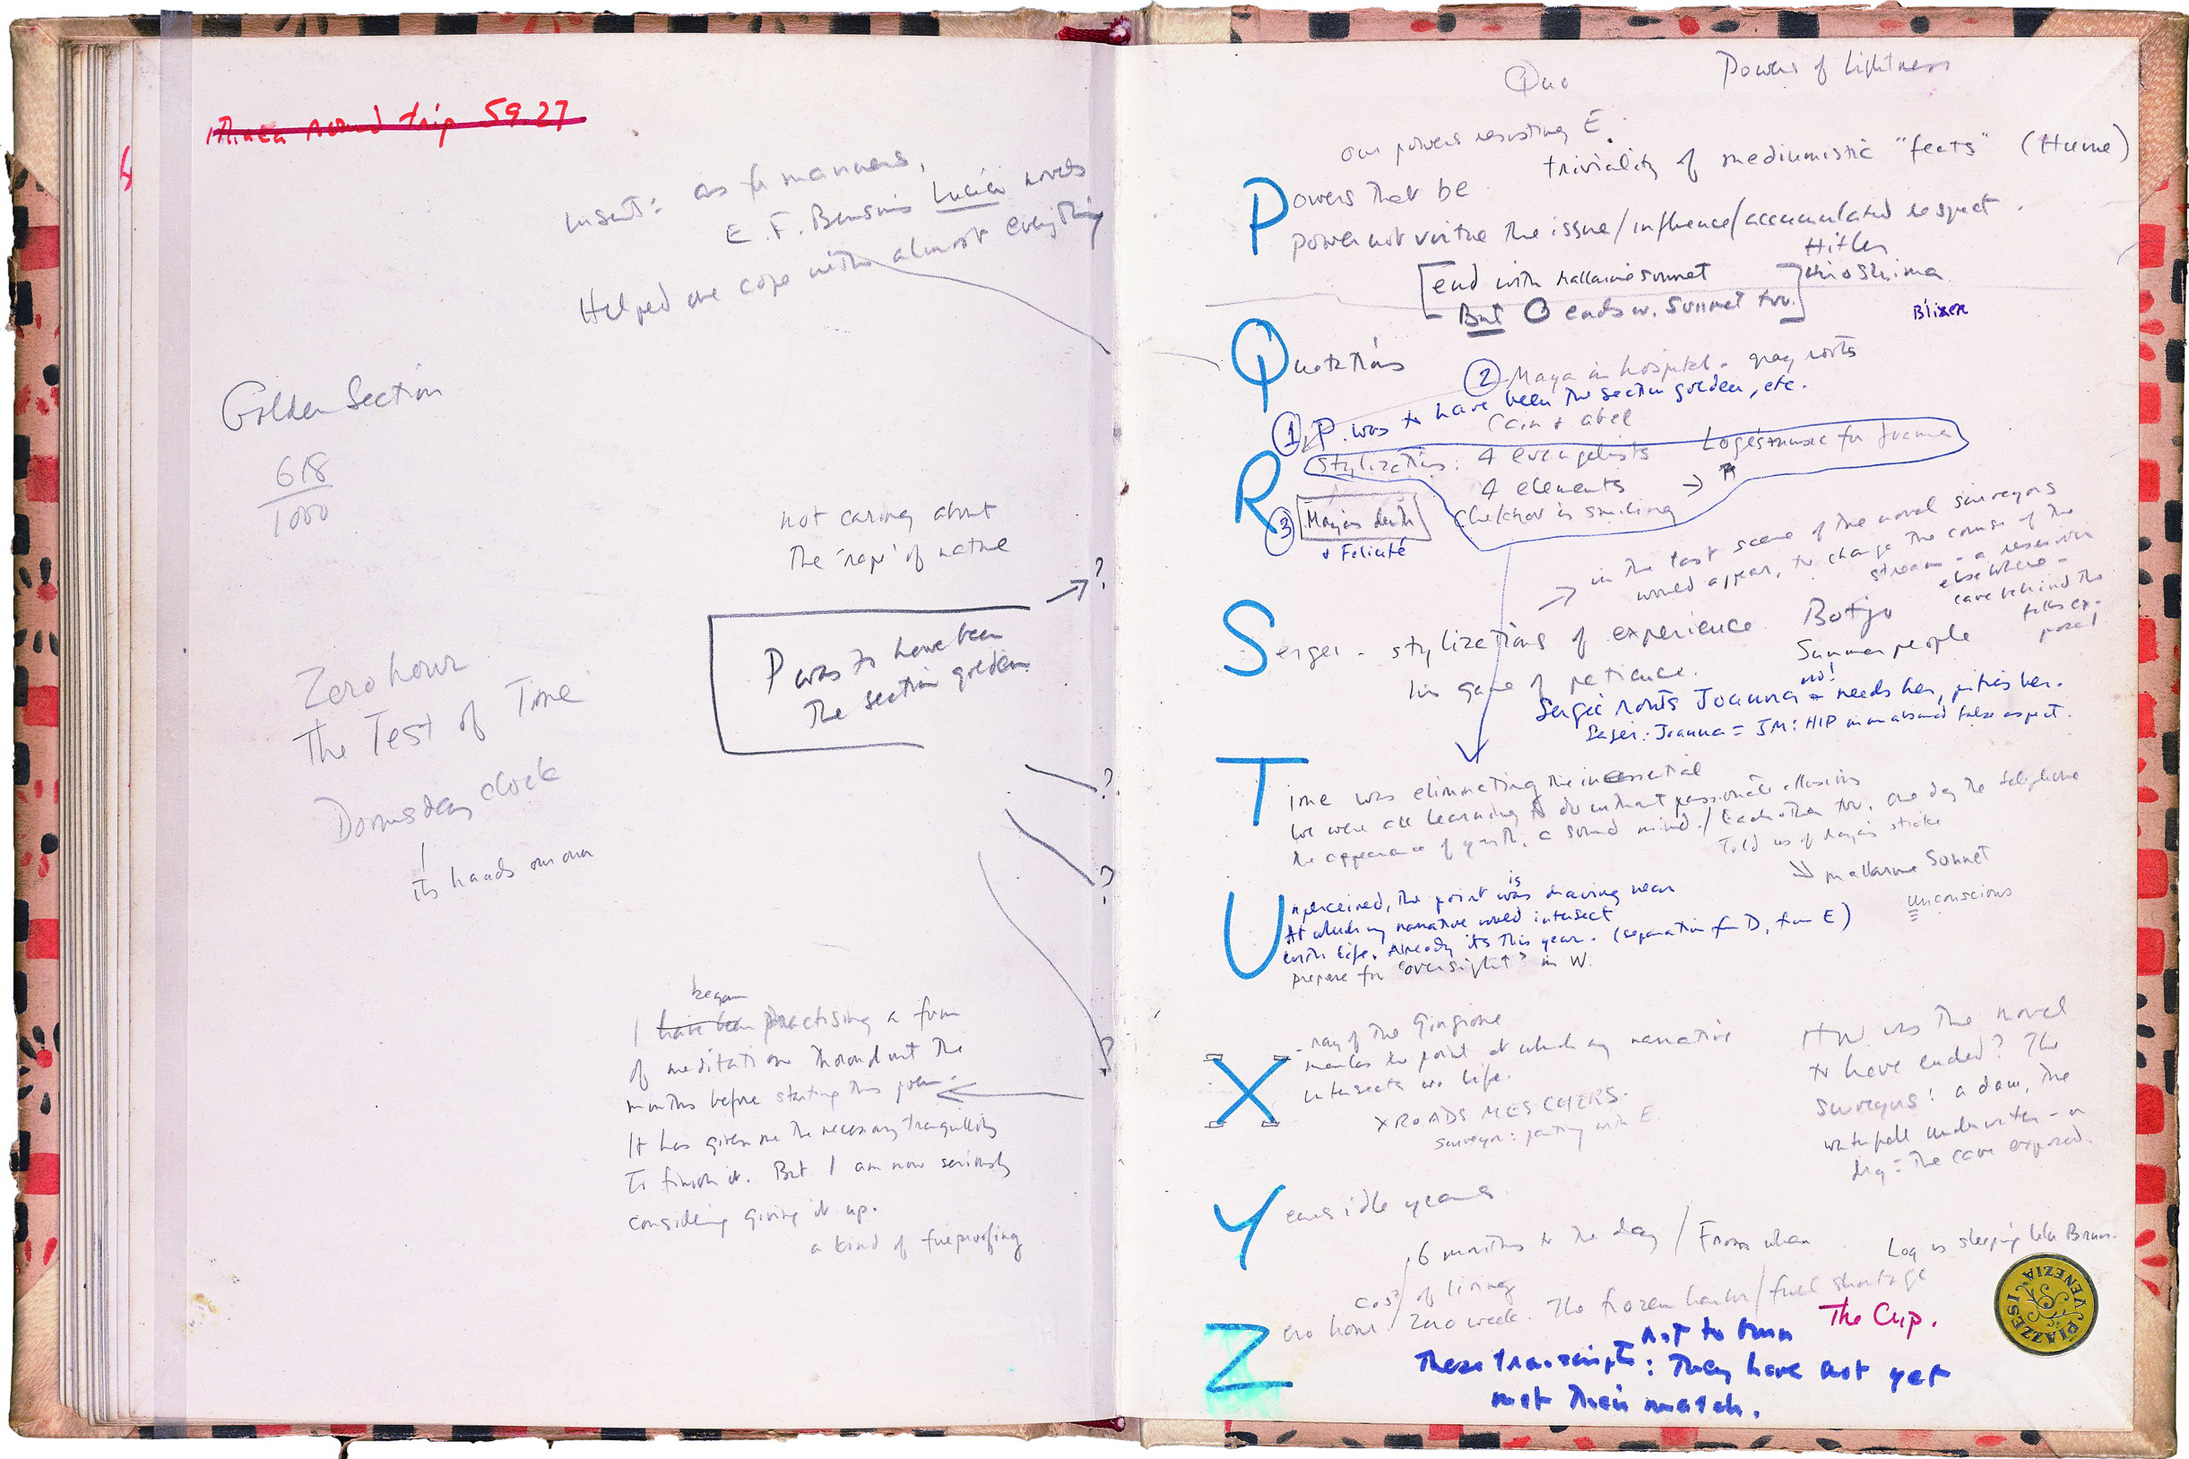 Ithaca round trip 59.27
Insert: as for manners,
E. F. Benson's Lucia novels
Helped me cope with almost everything
Golden Section
618
1000
not caring about
the 'rape' of nature
?
P was to have been
The section golden.
Zero hour
The Test of Time
Doomsday clock
its hands our own
?
?
?
began
I have been practising a form
of meditation throughout the
months before starting this poem.
It has given me the necessary tranquillity
To finish it. But I am now seriously
considering giving it up.
a kind of fireproofing
Quo
Powers of Lightness
our powers resisting E.
triviality of mediumistic "feats" (Hume)
Powers that be
power not virtue the issue/influence/accumulated respect.
Hitler
Hiroshima
[end with Mallarmé sonnet
But O ends w. Sonnet too.]
Blixen
Quotations
② Maya in hospital - gray roots
① P. was to have been the section golden, etc.
Cain + Abel
R
stylization: 4 evangelists
Loge's music for Joanna
4 elements
③ Maya's death
Chekhov is smiling
+ Felicité
in the last scene of the novel surveyors
would appear, to change the course of the
stream - a reservoir
elsewhere -
cave behind the
falls ex-
posed
Sergei - stylizations of experience
Summer people
his game of patience.
no!
Sergei wants Joanna - needs her, pities her.
Later: Joanna = JM: HIP in an absurd false aspect.
Time was eliminating the inessential
We were all learning to do without passionate illusions
the appearance of youth, a sound mind. / Each other too. One day the telephone
Told us of Maya's stroke
Mallarmé Sonnet
unconscious
is
Unperceived, the point was drawing near
At which my narrative would intersect
With life. Already it's this year. (separation from D, from E)
prepare for "oversight" in W.
X-ray of the Giorgione
marks the point at which my narrative
intersects w. life.
X ROADS MESSENGERS.
surveyor: parting with E
How was the novel
to have ended? The
surveyors: a dam, the
waterfall underwater - or
dry = the cave exposed.
Years idle years
6 months to the day / From when
cost/of living
Log is sleeping like Brunn.
Zero hour. Zero week. The frozen harbor/fuel shortage
The Cup.
Not to burn
These transcripts: They have not yet
met their match.
PIAZZESI
VENEZIA